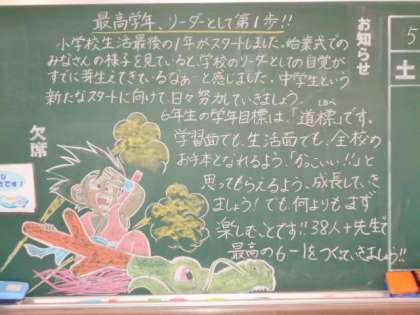 最高学年、リーダーとして第1歩!!
小学校生活最後の1年がスタートしました。始業式での
みなさんの様子を見ていると、学校のリーダーとしての自覚が
すでに芽生えてきているなぁーと感じました。中学生という
新たなスタートに向けて、日々努力していきましょう。
6年生の学年目標は、「道標」です。
学習面でも、生活面でも、全校の
お手本となれるよう、「かっこいい!!」と
思ってもらえるよう、成長していき
ましょう!でも、何よりもまず
楽しむことです!!38人+先生で
最高の6-1をつくっていきましょう!!
お知らせ
5
土
欠席